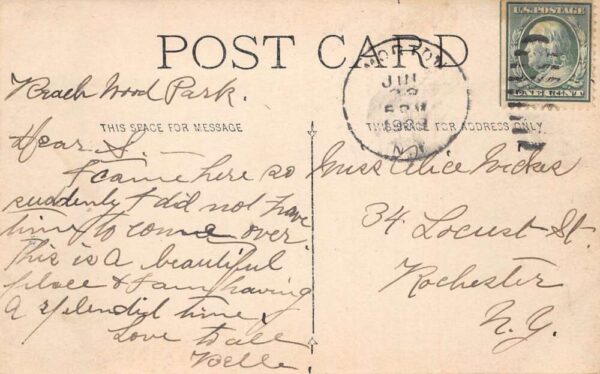 POST CARD
U.S. POSTAGE
ONE CENT
MORTON
N.Y.
Beach Wood Park.
THIS SPACE FOR MESSAGE
THIS SPACE FOR ADDRESS ONLY
Dear S.—
I came here so
suddenly I did not have
time to come over.
This is a beautiful
place & I am having
a splendid time.
Love to all
Belle.
Miss Alice
34
Locust St.
Rochester
N.Y.